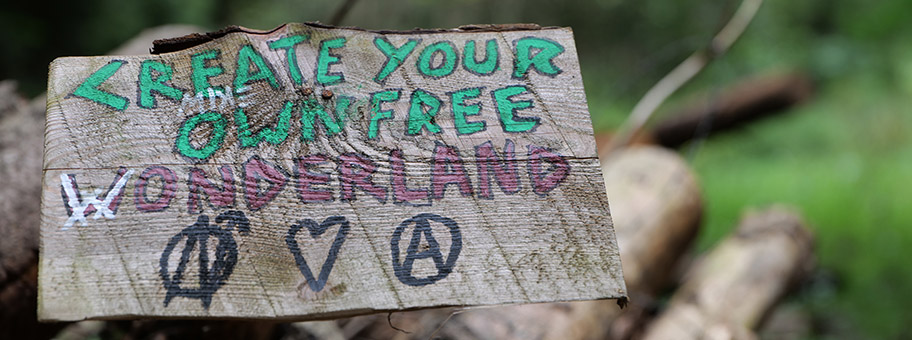 CREATE YOUR
OWN FREE
WONDERLAND
A